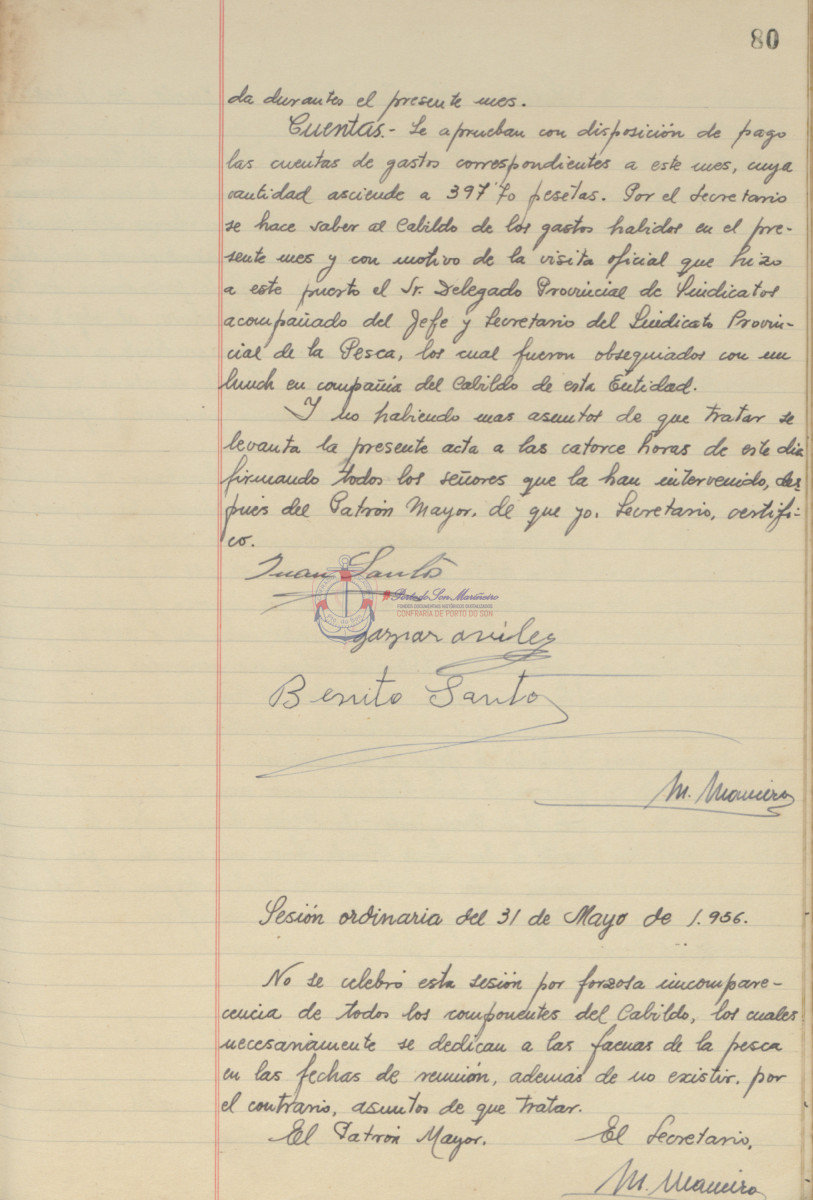 80
da durantes el presente mes.
Cuentas.- Se aprueban con disposición de pago
las cuentas de gastos correspondientes a este mes, cuya
cantidad asciende a 397'70 pesetas. Por el Secretario
se hace saber al Cabildo de los gastos habidos en el pre-
sente mes y con motivo de la visita oficial que hizo
a este puerto el Sr. Delegado Provincial de Sindicatos
acompañado del Jefe y Secretario del Sindicato Provin-
cial de la Pesca, los cual fueron obsequiados con un
lunch en compañia del Cabildo de esta Entidad.
Y no habiendo mas asuntos de que tratar se
levanta la presente acta a las catorce horas de este dia
firmando todos los señores que la han intervenido, des-
pués del Patrón Mayor, de que yo, Secretario, certifi-
co.
Juan Santos
Porto do Son Mariñeiro
FONDOS DOCUMENTAIS HISTÓRICOS DIXITALIZADOS
CONFRARÍA DE PORTO DO SON
gaspar aviles
Benito Santos
M. Maneiro
Sesión ordinaria del 31 de Mayo de 1.956.
No se celebró esta sesión por forzosa imcompare-
cencia de todos los componentes del Cabildo, los cuales
necesariamente se dedican a las faenas de la pesca
en las fechas de reunión, además de no existir, por
el contrario, asuntos de que tratar.
El Patrón Mayor. El Secretario,
M. Maneiro